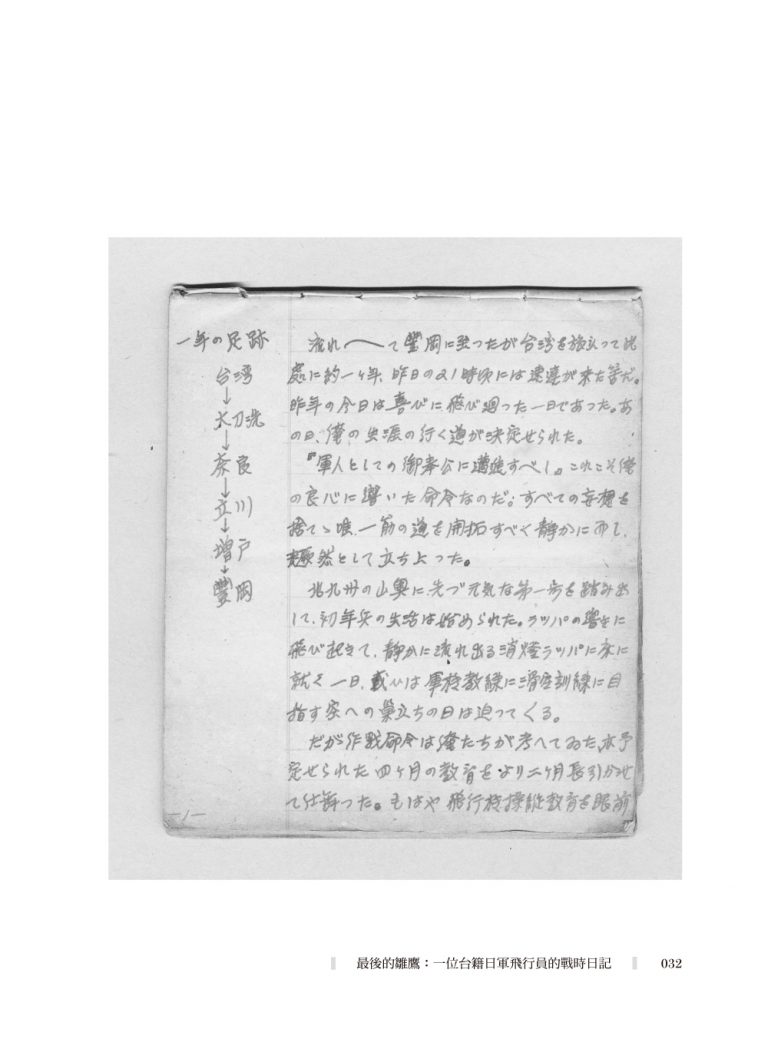 一年の足跡
台湾
↓
大刀洗
↓
奈良
↓
立川
↓
増戸
↓
豐岡
流れ〱て豐岡に至ったが台湾を旅立って此
處に約一ヶ年、昨日の21時頃には速達が来た筈だ。
昨年の今日は喜びに飛び廻った一日であった。あ
の日、俺の生涯の行く道が決定せられた。
『軍人としての御奉公に邁進すべし。これこそ俺
の良心に響いた命令なのだ。すべての妄想を
捨てゝ唯一筋の道を開拓すべく静かに而し
然として立ち上った。
北九州の山奥に先づ元気な第一歩を踏み出
して、初年兵の生活は始められた。ラッパの響きに
飛び起きて、静かに流れ出る消燈ラッパに床に
就く一日、或ひは軍校教練に滑空訓練に目
指す空への巣立ちの日は迫ってくる。
だが作戦命令は俺たちが考へてゐた、亦予
定せられた四ヶ月の教育をより二ヶ月長引かせ
て仕舞った。もはや飛行機操縦教育を眼前
-1-
最後的雛鷹：一位台籍日軍飛行員的戰時日記 032